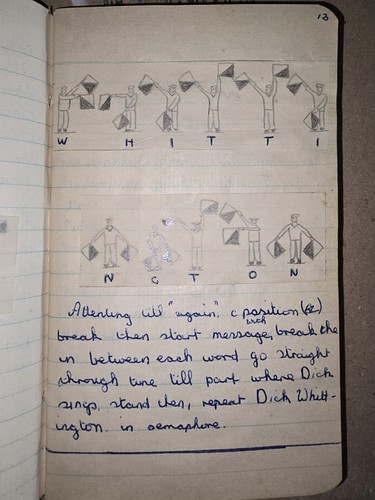 13
W H I T T I
N G T O N
Attenting till "again", c position (
break then start message, break the
wch
in between each word go straight
through tune till part where Dick
sings, stand then, repeat Dick Whitt-
ington in semaphore.